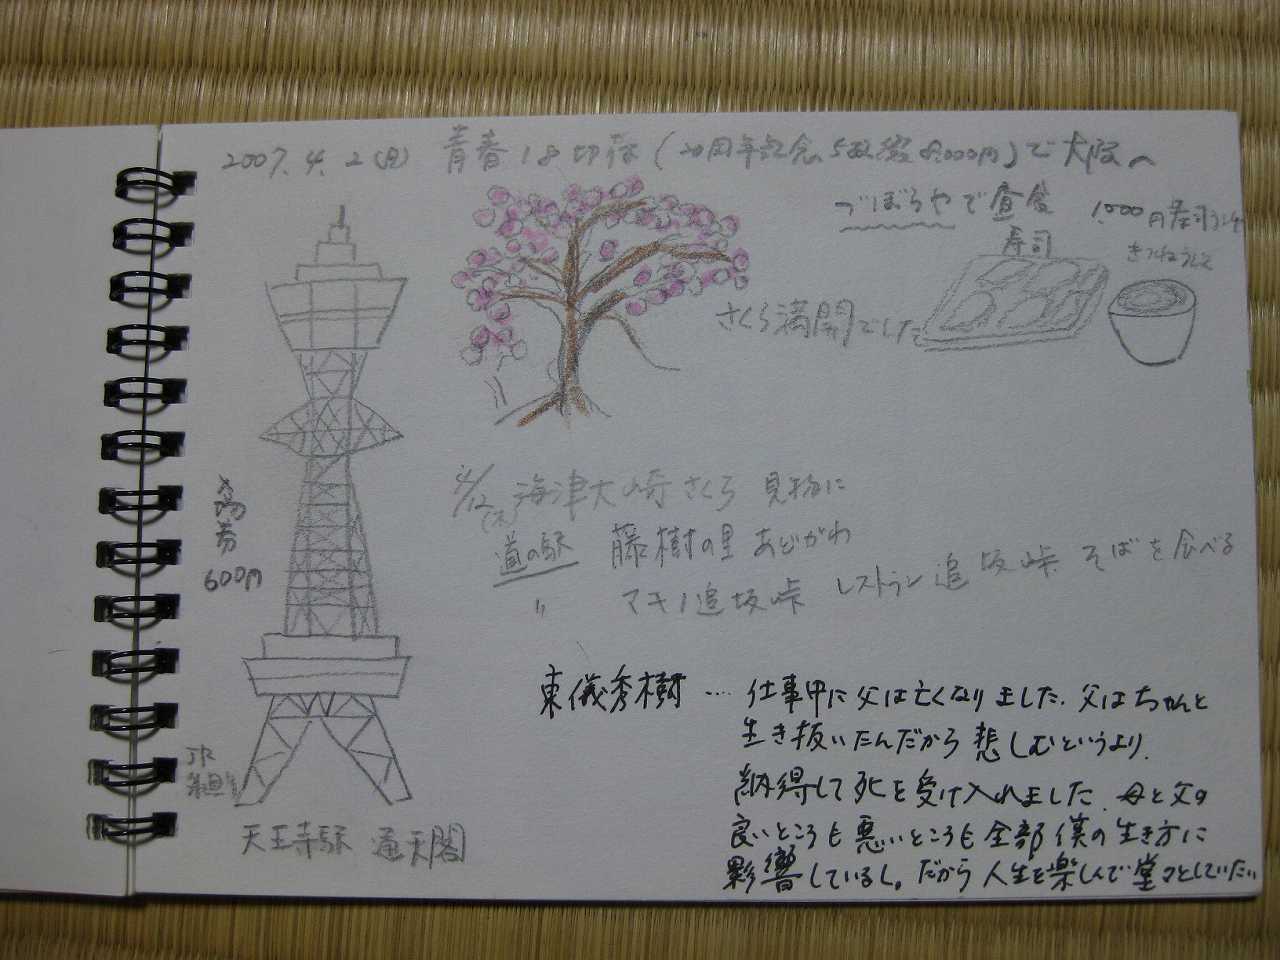 2007.4.2(月) 青春18切符(20周年記念、5枚綴8,000円)で大阪へ
づぼらやで昼食
1,000円寿司ランチ
寿司
きつねうどん
さくら満開でした
4/12(木)海津大崎さくら見物に
道の駅 藤樹の里あどがわ
〃 マキノ追坂峠 レストラン追坂峠 そばを食べる
入場券
600円
JR
天王寺駅 通天閣
東儀秀樹…仕事中に父は亡くなりました。父はちゃんと
生き抜いたんだから悲しむというより、
納得して死を受け入れました。母と父の
良いところも悪いところも全部僕の生き方に
影響しているし。だから人生を楽しんで堂々としていたい